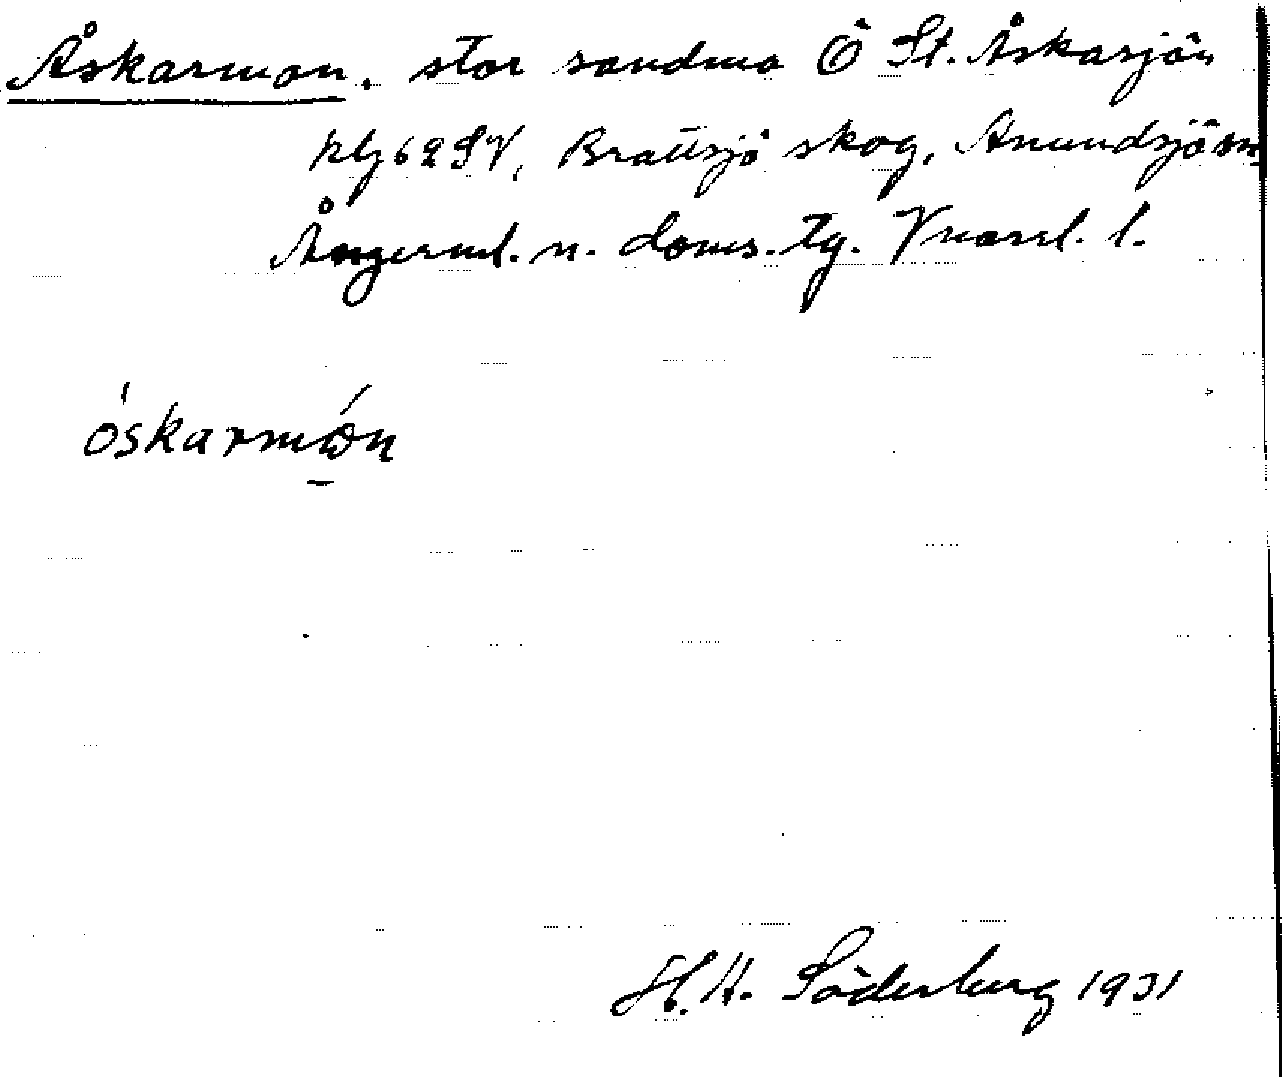 Åskarmon, stor sandmo Ö St. Åskasjön
kbl 62 SV, Brattsjö skog, Anundsjö sn
Ångerml. n. doms. tg. Vnorrl. l.
óskarmón
H. H. Söderberg 1931